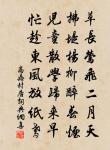 草長鶯飛二月天
拂堤楊柳醉春煙
兒童散學歸來早
忙趁東風放紙鳶
高鼎村居詩